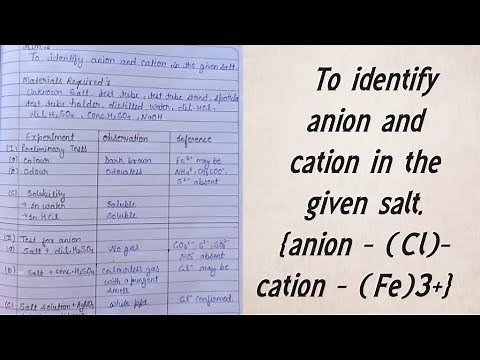 Aim :-
To identify anion and cation in the given salt.
Materials Required :-
Unknown salt, test tube, test tube stand, spatula,
test tube holder, distilled water, dil.HCl,
dil.H₂SO₄, Conc.H₂SO₄, NaOH
Experiment observation Inference
(I) Preliminary Tests
(a) Colour Dark brown Fe³⁺ may be
(b) Odour Odourless NH₄⁺, CH₃COO⁻,
S²⁻ absent
(c) Solubility
→ In water Soluble
→ In HCl Soluble
(II) Test for anion
(a) Salt + dil.H₂SO₄ No gas CO₃²⁻, S²⁻, SO₃²⁻
NO₂⁻ absent
(b) Salt + conc.H₂SO₄ Colourless gas Cl⁻ may be
with a pungent
smell
(c) Salt solution + AgNO₃ white ppt Cl⁻ confirmed.
To identify
anion and
cation in the
given salt.
{anion - (Cl)-
cation - (Fe)3+}